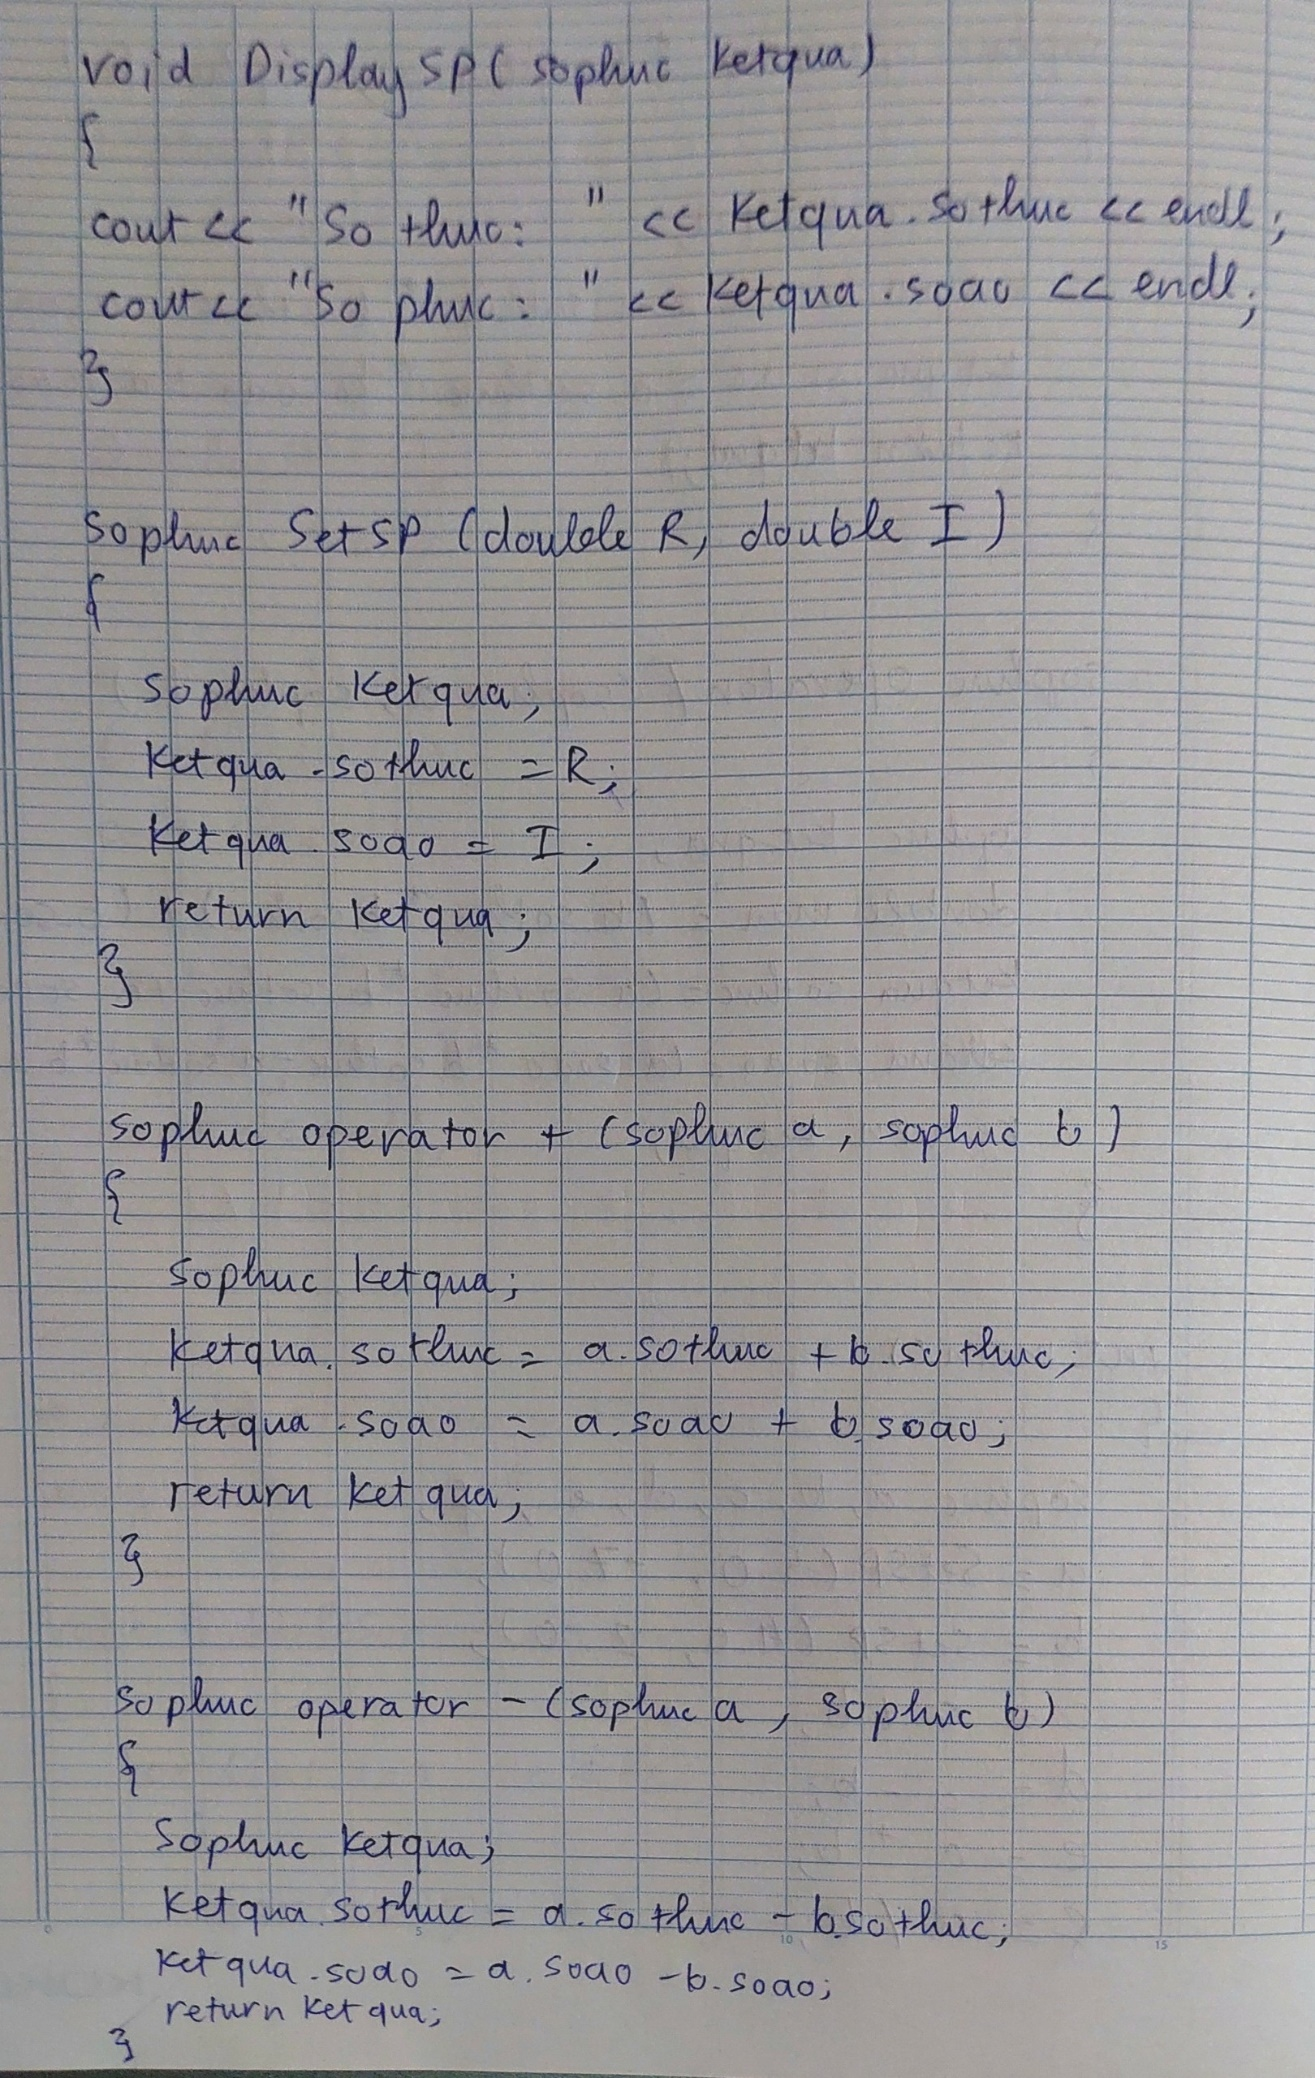 void DisplaySP( sophuc ketqua)
{
cout << "So thuc: " << ketqua.sothuc << endl;
cout << "So phuc: " << ketqua.soao << endl;
}
sophuc SetSP (double R, double I)
{
sophuc ketqua;
ketqua.sothuc = R;
ketqua.soao = I;
return ketqua;
}
sophuc operator + (sophuc a, sophuc b)
{
sophuc ketqua;
ketqua.sothuc = a.sothuc + b.sothuc;
ketqua.soao = a.soao + b.soao;
return ketqua;
}
sophuc operator - (sophuc a, sophuc b)
{
sophuc ketqua;
ketqua.sothuc = a.sothuc - b.sothuc;
ketqua.soao = a.soao - b.soao;
return ketqua;
}